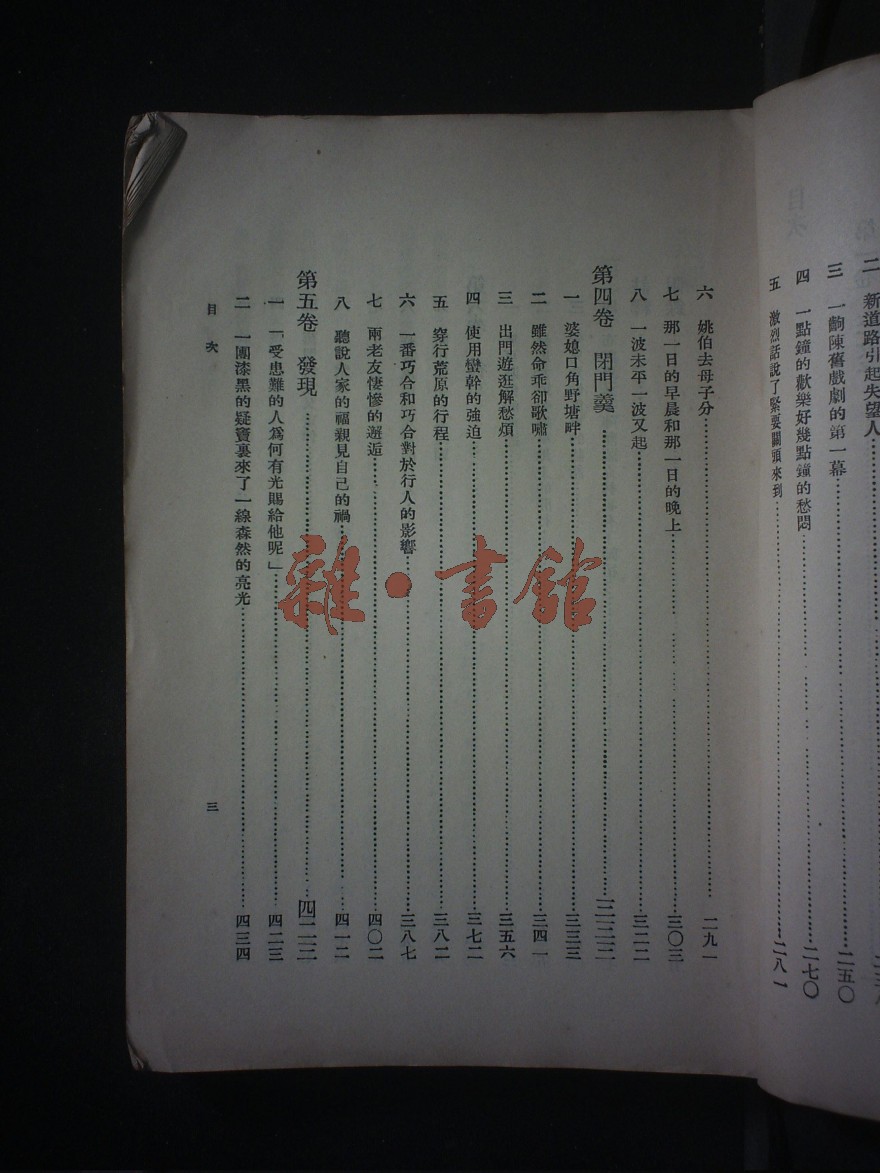 二 新道路引起失望人
三 一齣陳舊戲劇的第一幕 二五〇
四 一點鐘的歡樂好幾點鐘的愁悶 二七〇
五 激烈話說了緊要關頭來到 二八一
六 姚伯去母子分 二九一
七 那一日的早晨和那一日的晚上 三〇三
八 一波未平一波又起 三二二
第四卷 閉門羹
一 婆媳口角野塘畔 三三三
二 雖然命乖卻歌嘯 三四一
三 出門遊逛解愁煩 三五六
四 使用蠻幹的強迫 三七二
五 穿行荒原的行程 三八二
六 一番巧合和巧合對於行人的影響 三八七
七 兩老友悽慘的邂逅 四〇二
八 聽說人家的福親見自己的禍 四一二
第五卷 發現
一 「受患難的人爲何有光賜給他呢」 四二三
二 一團漆黑的疑竇裏來了一線森然的亮光 四三四
目次
三
雜·書館